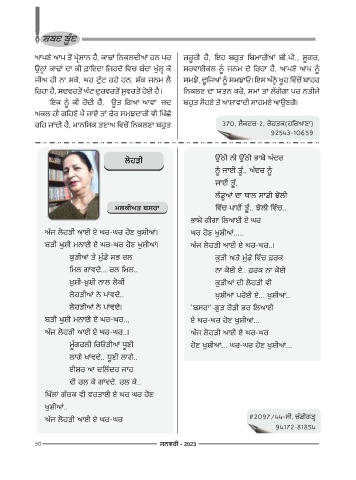 ਸ਼ਬਦ ਬੂੰਦ
ਆਪਣੇ ਆਪ ਤੋਂ ਪ੍ਰੇਸ਼ਾਨ ਹੈ, ਕਾਢਾਂ ਨਿਕਲਦੀਆਂ ਹਨ ਪਰ
ਉਨ੍ਹਾਂ ਕਾਢਾਂ ਦਾ ਕੀ ਫ਼ਾਇਦਾ ਜਿਹੜੇ ਵਿਚ ਬੰਦਾ ਖੁੱਲ੍ਹ ਕੇ
ਜੀਅ ਹੀ ਨਾ ਸਕੇ, ਘਰ ਟੁੱਟ ਰਹੇ ਹਨ, ਸ਼ੱਕ ਜਨਮ ਲੈ
ਰਿਹਾ ਹੈ, ਸਦਵਰਤੋਂ ਘੱਟ ਦੁਰਵਰਤੋਂ ਲੁਵਰਤੋਂ ਹੋਈ ਹੈ।
ਇਕ ਨੂੰ ਕੀ ਹੋਈ ਹੈ, ਊਤ ਗਿਆ ਆਵਾ ਜਦ
ਅਕਲ ਹੀ ਗਹਿਣੇ ਪੈ ਜਾਏ ਤਾਂ ਫੇਰ ਸਮਝਦਾਰੀ ਵੀ ਪਿੱਛੇ
ਰਹਿ ਜਾਂਦੀ ਹੈ, ਮਾਨਸਿਕ ਤਣਾਅ ਵਿਚੋਂ ਨਿਕਲਣਾ ਬਹੁਤ
ਜ਼ਰੂਰੀ ਹੈ, ਇਹ ਬਹੁਤ ਬਿਮਾਰੀਆਂ ਬੀ.ਪੀ., ਸ਼ੂਗਰ,
ਸਰਵਾਈਕਲ ਨੂੰ ਜਨਮ ਦੇ ਰਿਹਾ ਹੈ, ਆਪਣੇ ਆਪ ਨੂੰ
ਸਮਝੋ, ਦੂਜਿਆਂ ਨੂੰ ਸਮਝਾਓ। ਇਸ ਅੰਨ੍ਹੇ ਖੂਹ ਵਿੱਚੋਂ ਬਾਹਰ
ਨਿਕਲਣ ਦਾ ਯਤਨ ਕਰੋ, ਸਮਾਂ ਤਾਂ ਲੱਗੇਗਾ ਪਰ ਨਤੀਜੇ
ਬਹੁਤ ਸੋਹਣੇ ਤੇ ਆਸ਼ਾਵਾਦੀ ਸਾਹਮਣੇ ਆਉਣਗੇ।
370, ਸੈਕਟਰ-2, ਰੋਹਤਕ(ਹਰਿਆਣਾ)
92543-10659
ਲੋਹੜੀ
ਮਲਕੀਅਤ ਬਸਰਾ
ਅੱਜ ਲੋਹੜੀ ਆਈ ਏ ਘਰ-ਘਰ ਹੋਣ ਖੁਸ਼ੀਆਂ।
ਬੜੀ ਖੁਸ਼ੀ ਮਨਾਈ ਏ ਘਰ-ਘਰ ਹੋਣ ਖੁਸ਼ੀਆਂ।
ਕੁੜੀਆਂ ਤੇ ਮੁੰਡੇ ਸਭ ਰਲ
ਮਿਲ ਗਾਂਵਦੇ... ਰਲ ਮਿਲ..
ਖੁਸ਼ੀ-ਖੁਸ਼ੀ ਨਾਲ ਲੋਕੀਂ
ਲੋਹੜੀਆਂ ਨੇ ਪਾਂਵਦੇ..
ਲੋਹੜੀਆਂ ਨੇ ਪਾਂਵਦੇ।
ਬੜੀ ਖੁਸ਼ੀ ਮਨਾਈ ਏ ਘਰ-ਘਰ..,
ਅੱਜ ਲੋਹੜੀ ਆਈ ਏ ਘਰ-ਘਰ..।
ਮੂੰਗਫਲੀ ਰਿਓੜੀਆਂ ਧੂਣੀ
ਲਾਗੇ ਖਾਂਵਦੇ.. ਧੂਣੀ ਲਾਗੇ..
ਈਸ਼ਰ ਆ ਦਲਿੱਦਰ ਜਾਹ
ਵੀ ਰਲ ਕੇ ਗਾਂਵਦੇ. ਰਲ ਕੇ..
ਖਿੱਲਾਂ ਗੱਚਕ ਵੀ ਵਰਤਾਈ ਏ ਘਰ ਘਰ ਹੋਣ
ਖੁਸ਼ੀਆਂ..
ਅੱਜ ਲੋਹੜੀ ਆਈ ਏ ਘਰ-ਘਰ
ਉੱਠੀ ਨੀ ਉੱਠੀ ਭਾਬੋ ਅੰਦਰ
ਨੂੰ ਜਾਈਂ ਤੂੰ.. ਅੰਦਰ ਨੂੰ
ਜਾਈਂ ਤੂੰ.
ਲੱਡੂਆਂ ਦਾ ਥਾਲ ਸਾਡੀ ਝੋਲੀ
ਵਿੱਚ ਪਾਈਂ ਤੂੰ.. ਝੋਲੀ ਵਿੱਚ..
ਭਾਬੋ ਰੰਗੀਂ ਲਿਆਈ ਏ ਘਰ
ਘਰ ਹੋਣ ਖੁਸ਼ੀਆਂ.....
ਅੱਜ ਲੋਹੜੀ ਆਈ ਏ ਘਰ-ਘਰ..।
ਕੁੜੀ ਅਤੇ ਮੁੰਡੇ ਵਿੱਚ ਫ਼ਰਕ
ਨਾ ਕੋਈ ਏ.. ਫ਼ਰਕ ਨਾ ਕੋਈ
ਕੁੜੀਆਂ ਦੀ ਲੋਹੜੀ ਵੀ
ਖੁਸ਼ੀਆਂ ਪਰੋਈ ਏ... ਖੁਸ਼ੀਆਂ..
'ਬਸਰਾ' ਗੁੜ ਰੋੜੀ ਭਰ ਲਿਆਈ
ਏ ਘਰ-ਘਰ ਹੋਣ ਖੁਸ਼ੀਆਂ...
ਅੱਜ ਲੋਹੜੀ ਆਈ ਏ ਘਰ-ਘਰ
ਹੋਣ ਖੁਸ਼ੀਆਂ... ਘਰ-ਘਰ ਹੋਣ ਖੁਸ਼ੀਆਂ...
#2097/44-ਸੀ, ਚੰਡੀਗੜ੍ਹ
94172-81854
50
ਜਨਵਰੀ - 2023